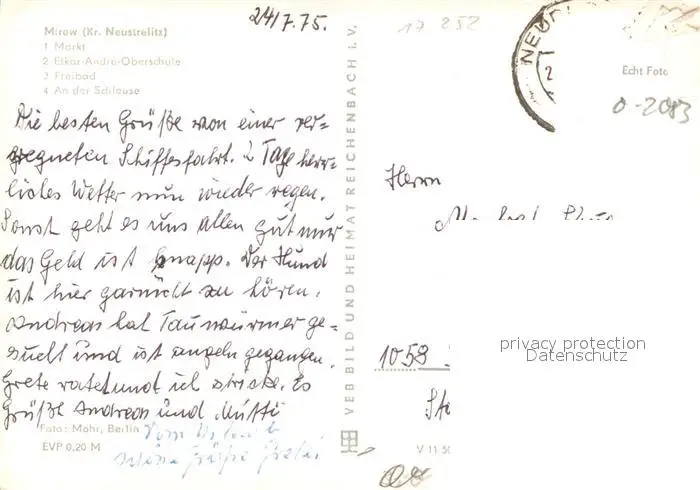 24/7.75.
Mirow (Kr. Neustrelitz)
1 Markt
2 Etkar-André-Oberschule
3 Freibad
4 An der Schleuse
Die besten Grüße von einer ver=
gregneten Schiffesfahrt. 2 Tage herr=
liches Wetter nun wieder regen.
Sonst geht es uns allen gut nur
das Geld ist knapp. Der Hund
ist hier garnicht zu hören.
Andreas hat Tauwürmer ge=
sucht und ist angeln gegangen.
Grete ratet und ich stricke. Es
Grüßt Andreas und Mutti
Vom
schöne Grüße
Foto: Mohr, Berlin
EVP 0,20 M
VEB BILD UND HEIMAT REICHENBACH i. V.
17 252
NEU
2
Echt Foto
0-2083
Herrn
1058
V 11 50
privacy protection
Datenschutz